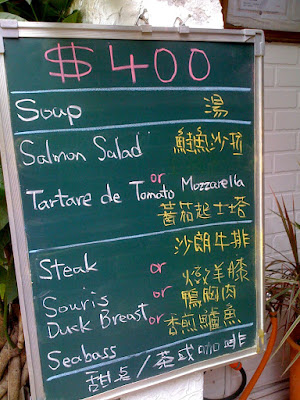 $400
Soup 湯
Salmon Salad 鮭魚沙拉
or
Tartare de Tomato Mozzarella
蕃茄起士塔
沙朗牛排
Steak or 燉羊膝
Souris 鴨胸肉
Dusk Breast or 香煎鱸魚
Seabass
甜點/茶或咖啡